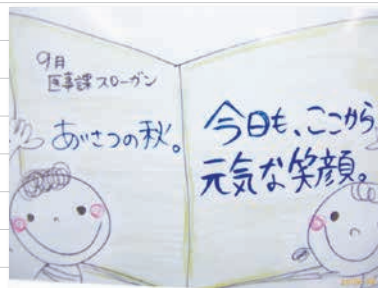 9月
医事課スローガン
あいさつの秋。
今日も、ここから
元気な笑顔。